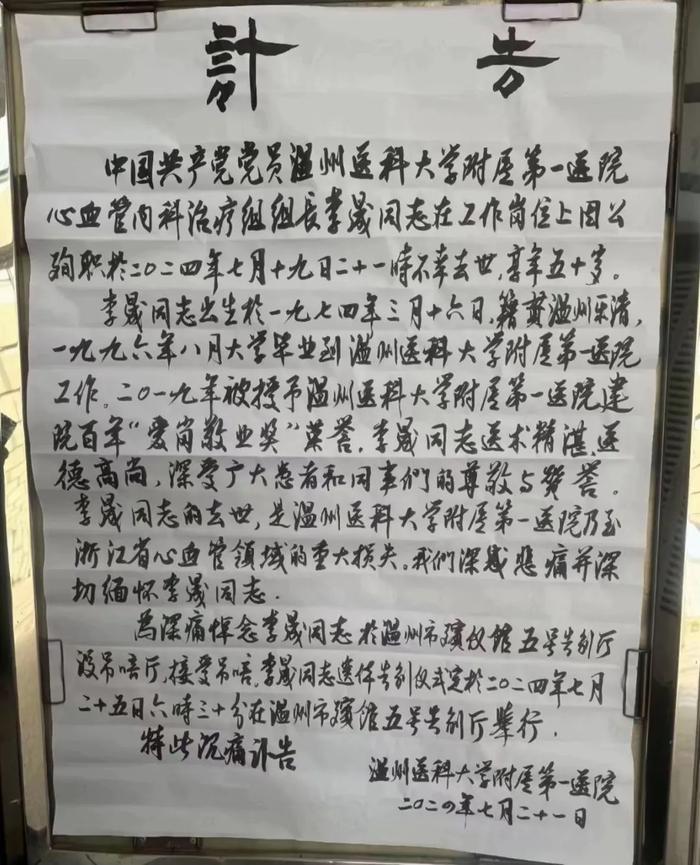 訃告
中国共产党党员温州医科大学附属第一医院
心血管内科治疗组组长李晟同志在工作岗位上因公
殉职於二〇二四年七月十九日二十一時不幸去世,享年五十岁。
李晟同志出生於一九七四年三月十六日,籍贯温州乐清,
一九九六年八月大学毕业到温州医科大学附属第一医院
工作。二〇一九年被授予温州医科大学附属第一医院建
院百年“爱岗敬业奖”荣誉.李晟同志医术精湛,医
德高尚,深受广大患者和同事们的尊敬与赞誉。
李晟同志的去世,是温州医科大学附属第一医院乃至
浙江省心血管领域的重大损失。我们深感悲痛并深
切缅怀李晟同志.
為深痛悼念李晟同志於温州市殡仪馆五号告别厅
设吊唁厅,接受吊唁,李晟同志遗体告别仪式定於二〇二四年七月
二十五日六時三十分在温州市殡馆五号告别厅举行.
特此沉痛讣告
温州医科大学附属第一医院
二〇二四年七月二十一日